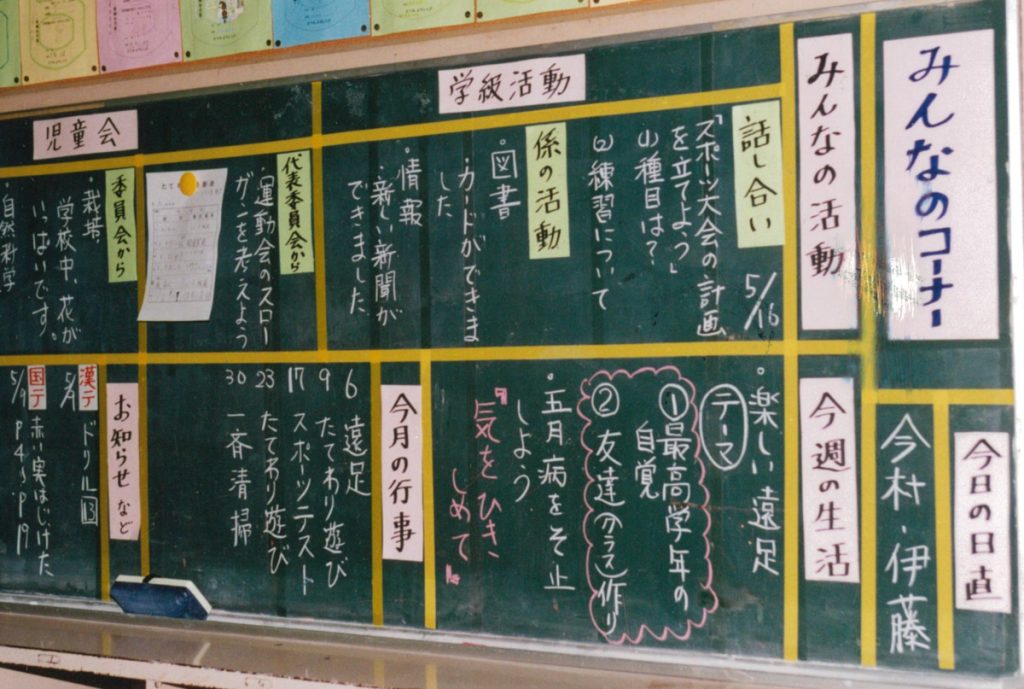 みんなのコーナー
今日の日直
今村・伊藤
みんなの活動
学級活動
話し合い
5/16
「スポーツ大会の計画
を立てよう」
(1)種目は?
(2)練習について
係の活動
・図書
カードができま
した
・情報
・新しい新聞が
できました
児童会
代表委員会から
・運動会のスロー
ガンを考えよう
委員会から
・栽培
学校中、花が
いっぱいです。
・自然科学
今週の生活
楽しい遠足
テーマ
①最高学年の
自覚
②友達(クラス)作り
・五月病をそ止
しよう
『気をひき
しめて』
今月の行事
6 遠足
9 たてわり遊び
17 スポーツテスト
23 たてわり遊び
30 一斉清掃
お知らせなど
漢テ ドリル13
5/9
国テ 赤い実はじけた
5/9 P4〜P19